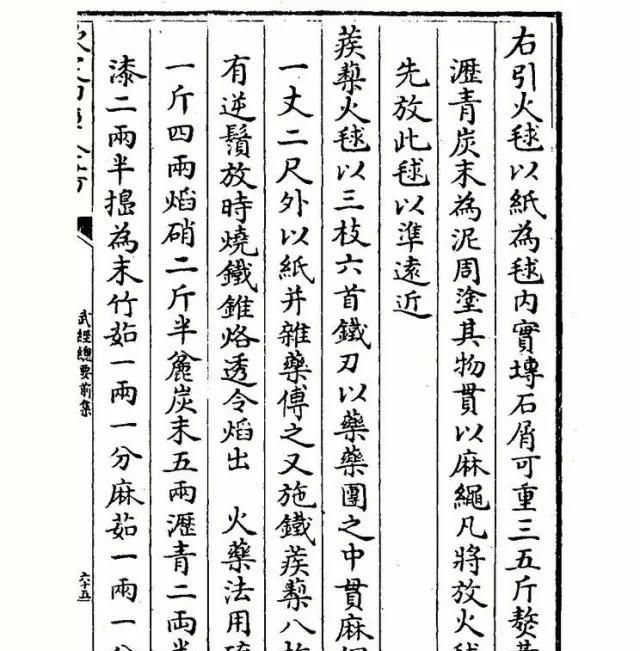 右引火毬以紙為毬内實塼石屑可重三五斤熬
瀝青炭末為泥周塗其物貫以麻繩凡將放火毬
先放此毬以準遠近
蒺䔧火毬以三枝六首鐵刃以藥藥團之中貫麻
一丈二尺外以紙并雜藥傅之又施鐵蒺䔧八
有逆鬚放時燒鐵錐烙透令焰出 火藥法用
一斤四兩焰硝二斤半麄炭末五兩瀝青二兩半
漆二兩半搗為末竹茹一兩一分麻茹一兩一分
武經總要前集
六十五